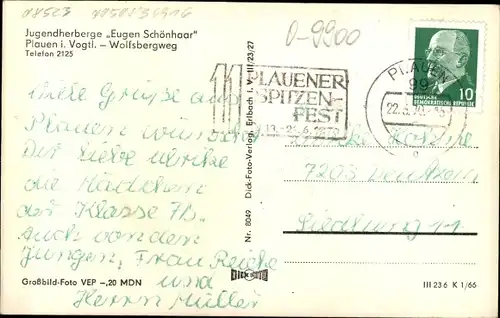 Jugendherberge „Eugen Schönhaar"
Plauen i. Vogtl. – Wolfsbergweg
Telefon 2125
D-9900
11. PLAUENER
SPITZEN-
FEST
PLAUEN
99
22.6.70
10
DEUTSCHE
DEMOKRATISCHE REPUBLIK
Viele Grüße aus
Plauen wünschen
Dir liebe Ulrike
die Mädchen
der Klasse 7b.
Auch von den
Jungen, Frau Reiche
und
Herrn Müller
Siedlung 11
Nr. 8049 Dick-Foto-Verlag, Erlbach i. V. III/23/27
DICK FOTO
Großbild-Foto VEP –,20 MDN
III 23 6 K 1/66